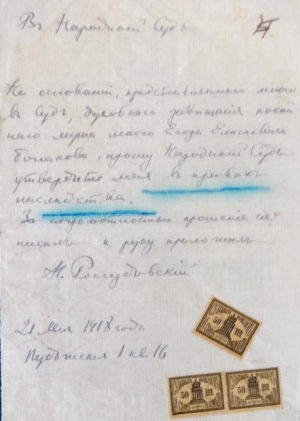 Въ Народный Судъ
На основаніи, представленнаго мною
въ Судъ, духовнаго завѣщанія покой
наго мужа моего Егора Елисѣевича
прошу Народный Судъ
утвердить меня въ правах
наслѣдства.
За неграмотностью прошеніе
писалъ и руку приложилъ
21 Мая 1918 года
1 кв. 16
50
50 50